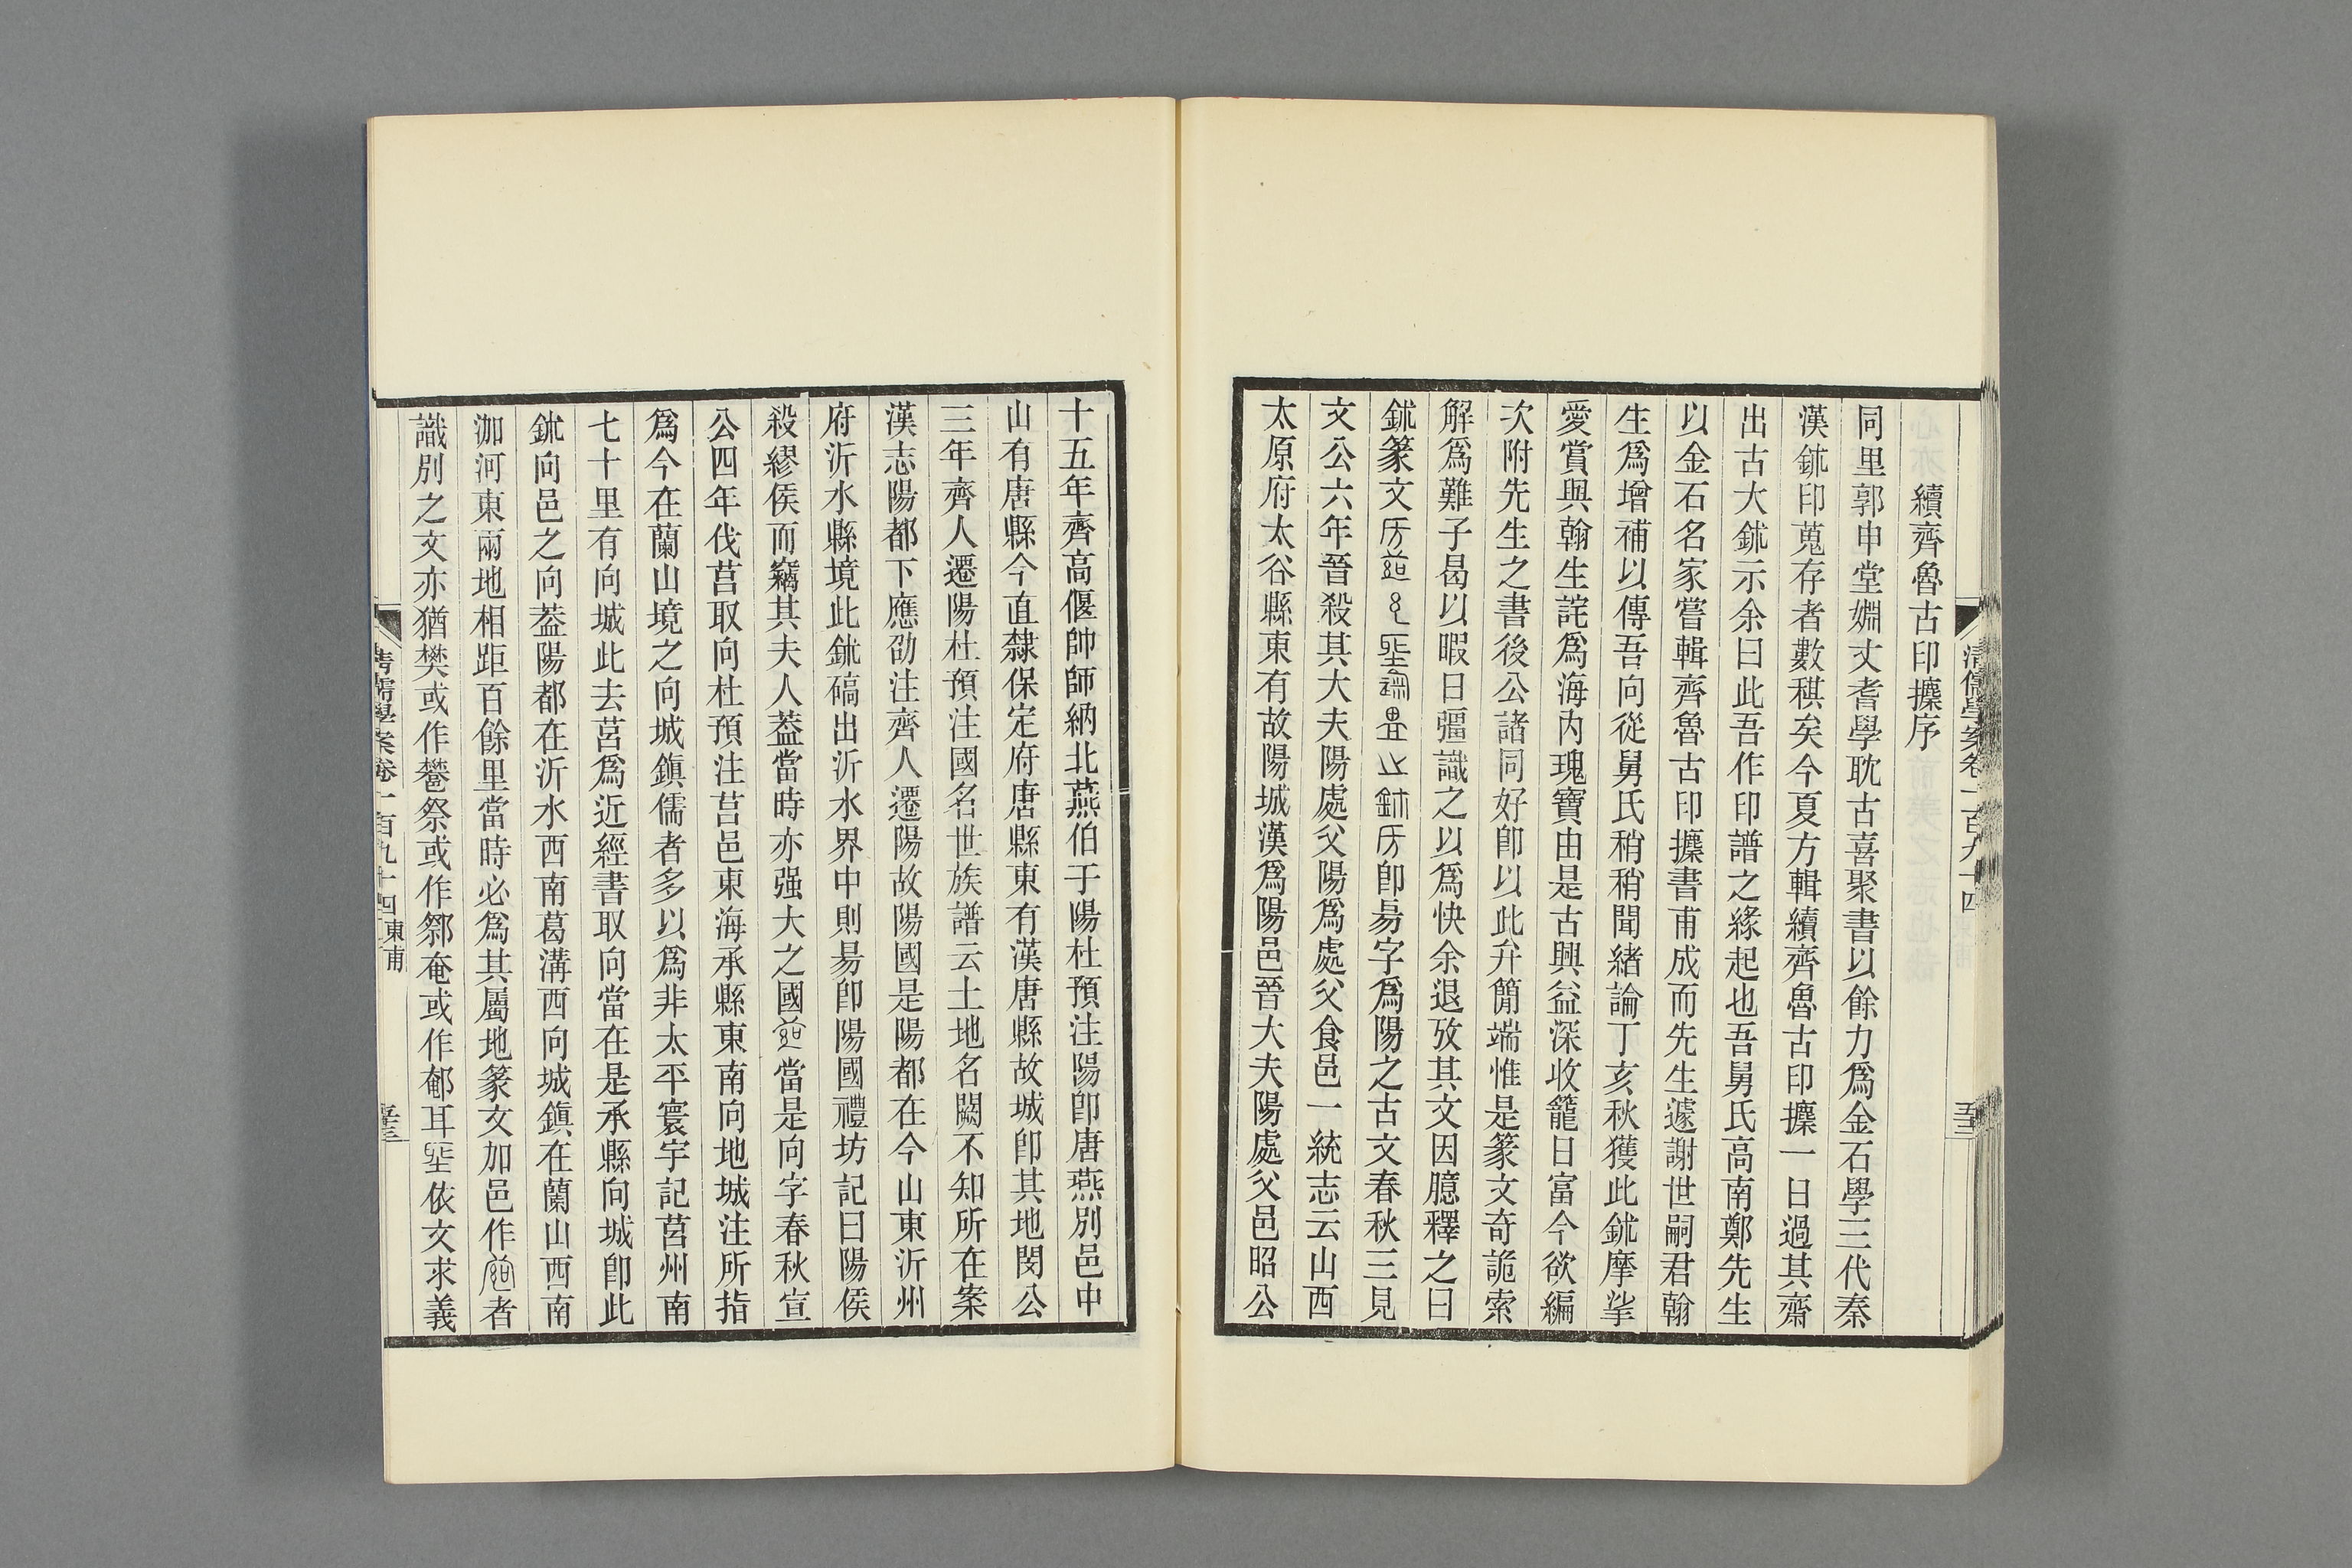 清儒學案卷一百九十四
續齊魯古印攈序
同里郭申堂媚丈耆學耽古喜聚書以餘力爲金石學三代秦
漢鉥印蒐存者數稘矣今夏方輯續齊魯古印攈一日過其齋
出古大鉥示余曰此吾作印譜之緣起也吾舅氏高南鄭先生
以金石名家嘗輯齊魯古印攈書甫成而先生遽謝世嗣君翰
生爲增補以傳吾向從舅氏稍稍聞緒論丁亥秋獲此鉥摩挲
愛賞與翰生詫爲海內瑰寶由是古興益深收籠日富今欲編
次附先生之書後公諸同好卽以此弁簡端惟是篆文奇詭索
解爲難子曷以暇日彊識之以爲快余退攷其文因臆釋之曰
鉥篆文鉥卽昜字爲陽之古文春秋三見
文公六年晉殺其大夫陽處父陽爲處父食邑一統志云山西
太原府太谷縣東有故陽城漢爲陽邑晉大夫陽處父邑昭公
十五年齊高偃帥師納北燕伯于陽杜預注陽卽唐燕別邑中
山有唐縣今直隸保定府唐縣東有漢唐縣故城卽其地閔公
三年齊人遷陽杜預注國名世族譜云土地名闕不知所在案
漢志陽都下應劭注齊人遷陽故陽國是陽都在今山東沂州
府沂水縣境此鉥碻出沂水界中則昜卽陽國禮坊記曰陽侯
殺繆侯而竊其夫人葢當時亦强大之國當是向字春秋宣
公四年伐莒取向杜預注莒邑東海承縣東南向地城注所指
爲今在蘭山境之向城鎭儒者多以爲非太平寰宇記莒州南
七十里有向城此去莒爲近經書取向當在是承縣向城卽此
鉥向邑之向葢陽都在沂水西南葛溝西向城鎭在蘭山西南
泇河東兩地相距百餘里當時必爲其屬地篆文加邑作者
識別之文亦猶樊或作𨞪祭或作鄒奄或作郁耳依文求義
清儒學案卷一百九十四 東甫